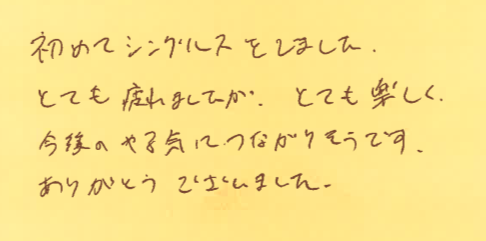 初めてシングルスをしました.
とても疲れましたが. とても楽しく.
今後のやる気につながりそうです.
ありがとうございました.